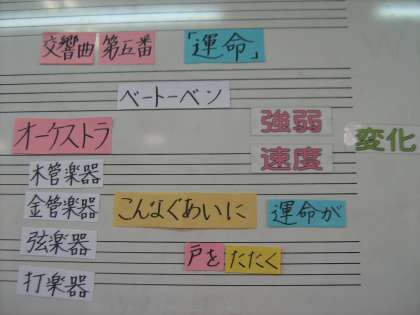 交響曲 第五番 「運命」
ベートーベン
強弱
変化
オーケストラ
速度
木管楽器
金管楽器 こんなぐあいに 運命が
弦楽器
戸を たたく
打楽器